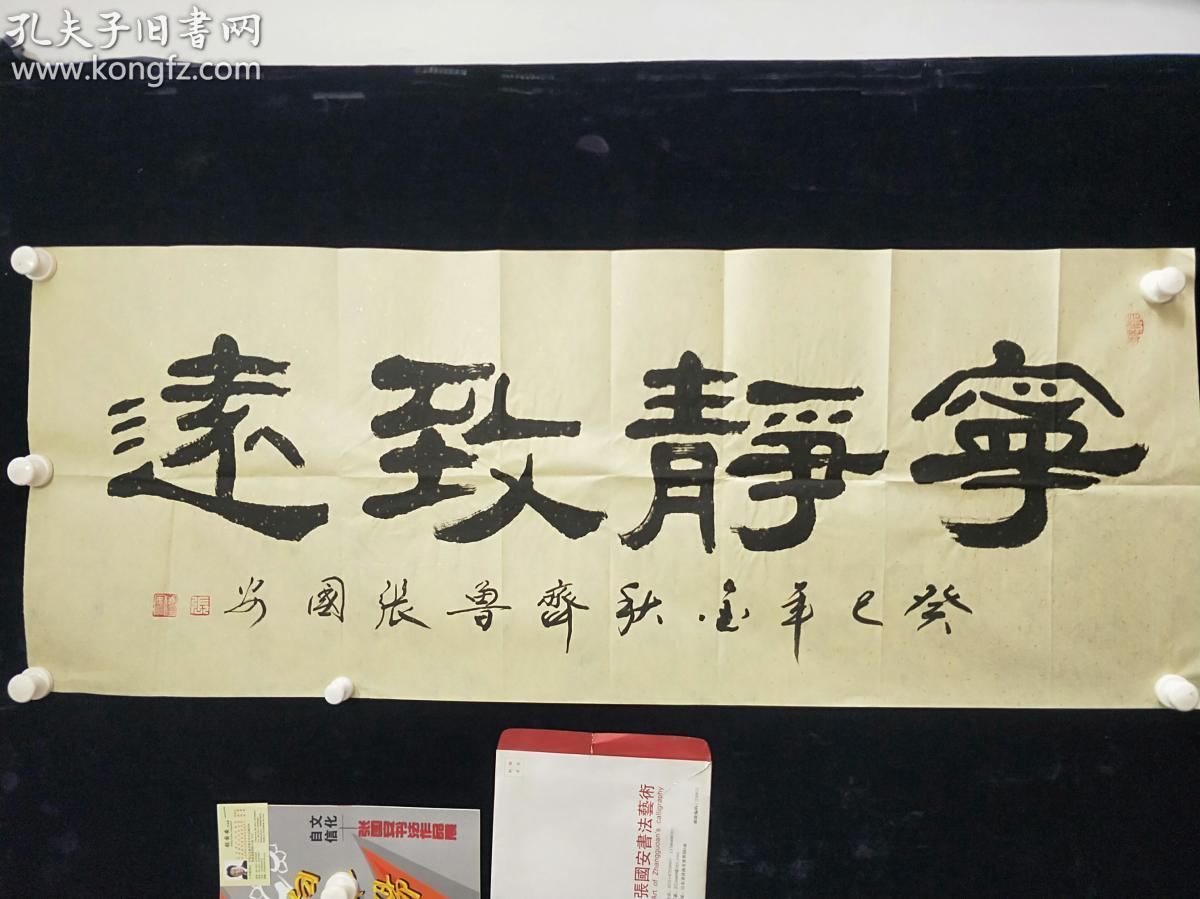 孔夫子旧书网
www.kongfz.com
寧靜致遠
癸巳年金秋齊魯張國安
文化
自信
張國安書法作品展
張國安書法藝術
Art of Zhangguoan's calligraphy